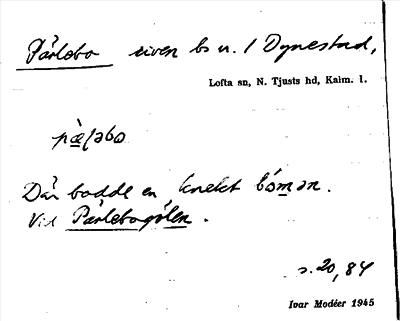 Pärlebo riven bs u. / Dynestad,
Lofta sn, N. Tjusts hd, Kalm. l.
pæ̀ḷəbo
Där bodde en knekt bóman.
Vid Pärlebogölen.
s. 20, 84
Ivar Modéer 1945